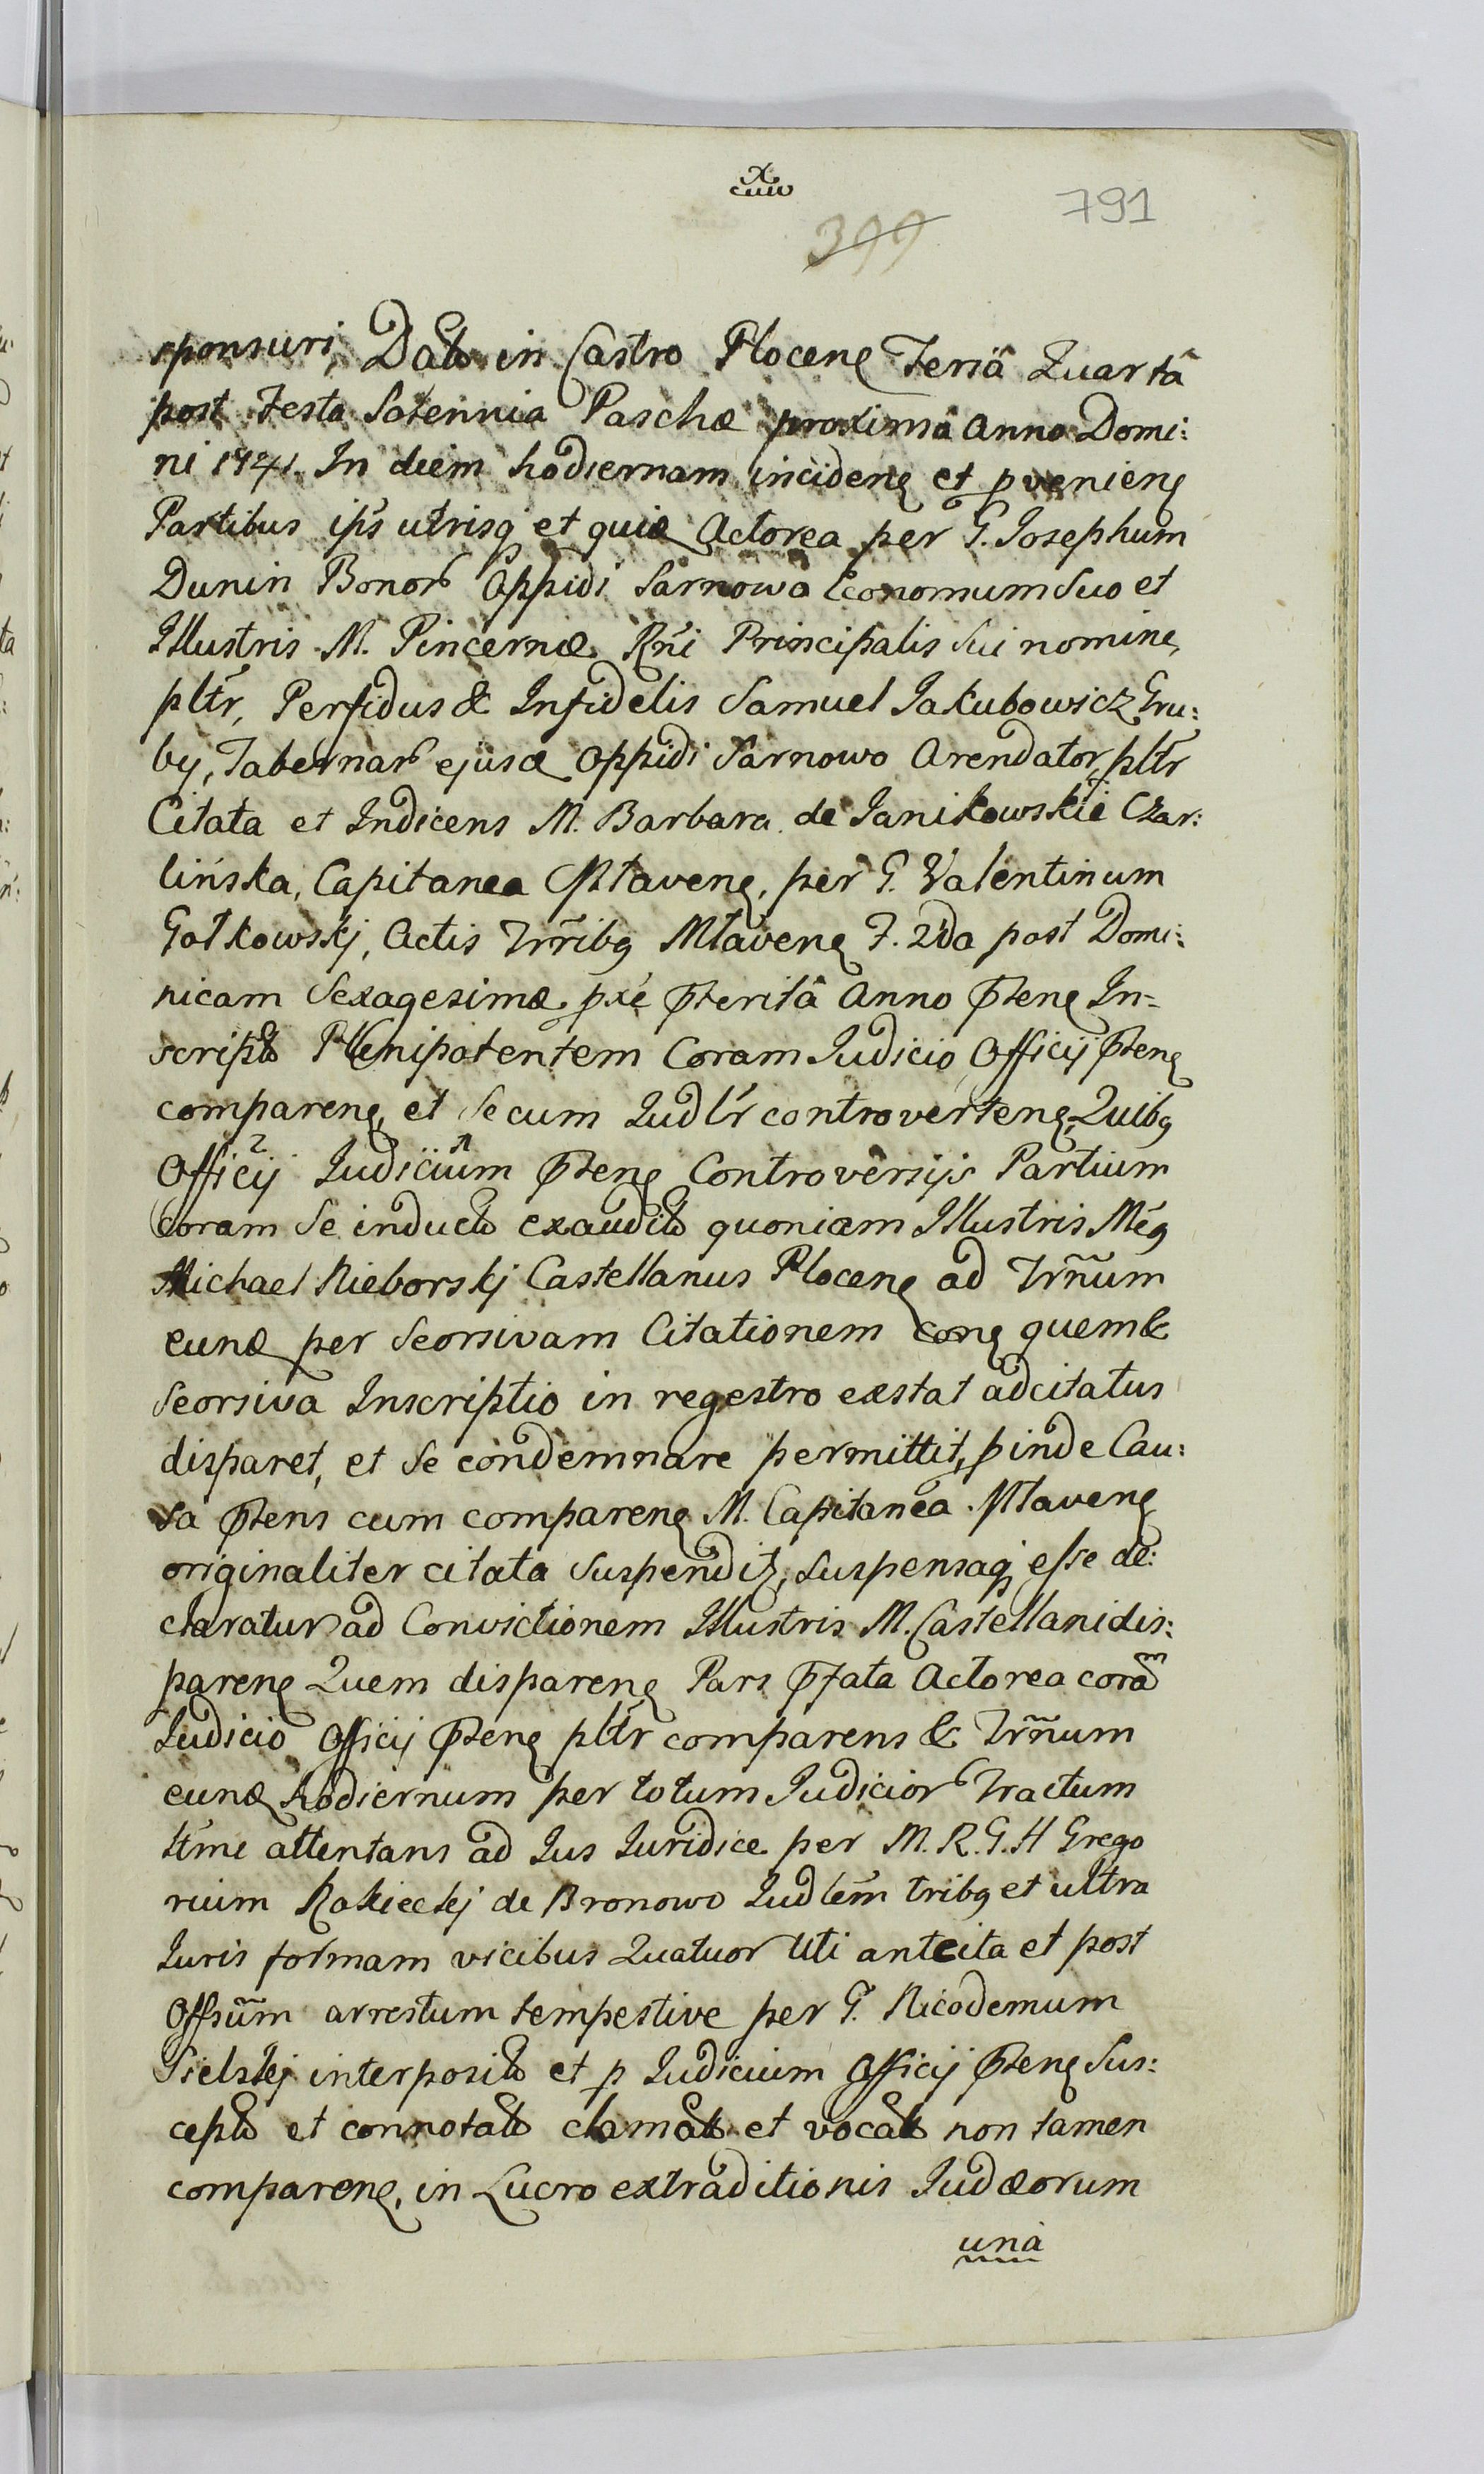 791
399
sponsuri, Dato in Castro Plocenẹ Feriâ Quartâ
post Festa Solennia Paschæ proximâ Anno Domi:
ni 1741. In diem hodiernam incidenẹ et pvenienẹ
Partibus ip̃s utrisq̨ et quidẹ Actorea per G. Josephum
Dunin Bonor Oppidi Sarnowo Economum Suo et
Illustris M. Pincernæ Rñi Principalis Sui nomine,
pltr, Perfidus & Infidelis Samuel Jakubowicz Gru:
by, Tabernar ejusdẹ Oppidi Sarnowo Arendator, pltr
Citata et Indicens M. Barbara de Janikowskie Czar:
lińska, Capitanea Mlavenẹ, per G. Valentinum
Gołkowskj, Actis Trribq Mlavenẹ F. 2da post Domi:
nicam Sexagesimæ pxe p̄terita Anno p̄tenẹ In=
scripto Plenipotentem Coram Judicio Officij p̄tenẹ
comparenẹ, et Secum Judlr controvertenẹ, Quibq
Officij Judicium p̄tenẹ Controversijs Partium
Coram Se inducto exaudito quoniam Illustris Mẽg
Michael Nieborskj Castellanus Plocenẹ ad Trñum
eundẹ per Seorsivam Citationem conẹ quem &
Seorsiva Inscriptio in regestro exstat adcitatus
disparet, et Se condemnare permittit, pinde Cau:
sa p̄tens cum comparenẹ M. Capitanea Mlavenẹ
originaliter citata Suspendit, Suspensaq̨ esse de:
claratur ad Convictionem Illustris M. Castellani dis:
parenẹ Quem disparenẹ Pars p̄fata Actorea corãm
Judicio Officij p̄tenẹ pltr comparens & Trñum
eundẹ hodiernum per totum Judicior Tractum
ltme attentans ad Jus Juridice per M. R. G. H Grego
rium Rokickj de Bronowo Judlem tribq et ultra
Juris formam vicibus Quatuor Uti antcita et post
Offsum arrestum tempestive per G. Nicodemum
Sielskj interposito et p Judicium Officij p̄tenẹ Sus:
cepto et connotato clamato et vocato non tamen
comparenẹ, in Lucro extraditionis Judæorum
unà